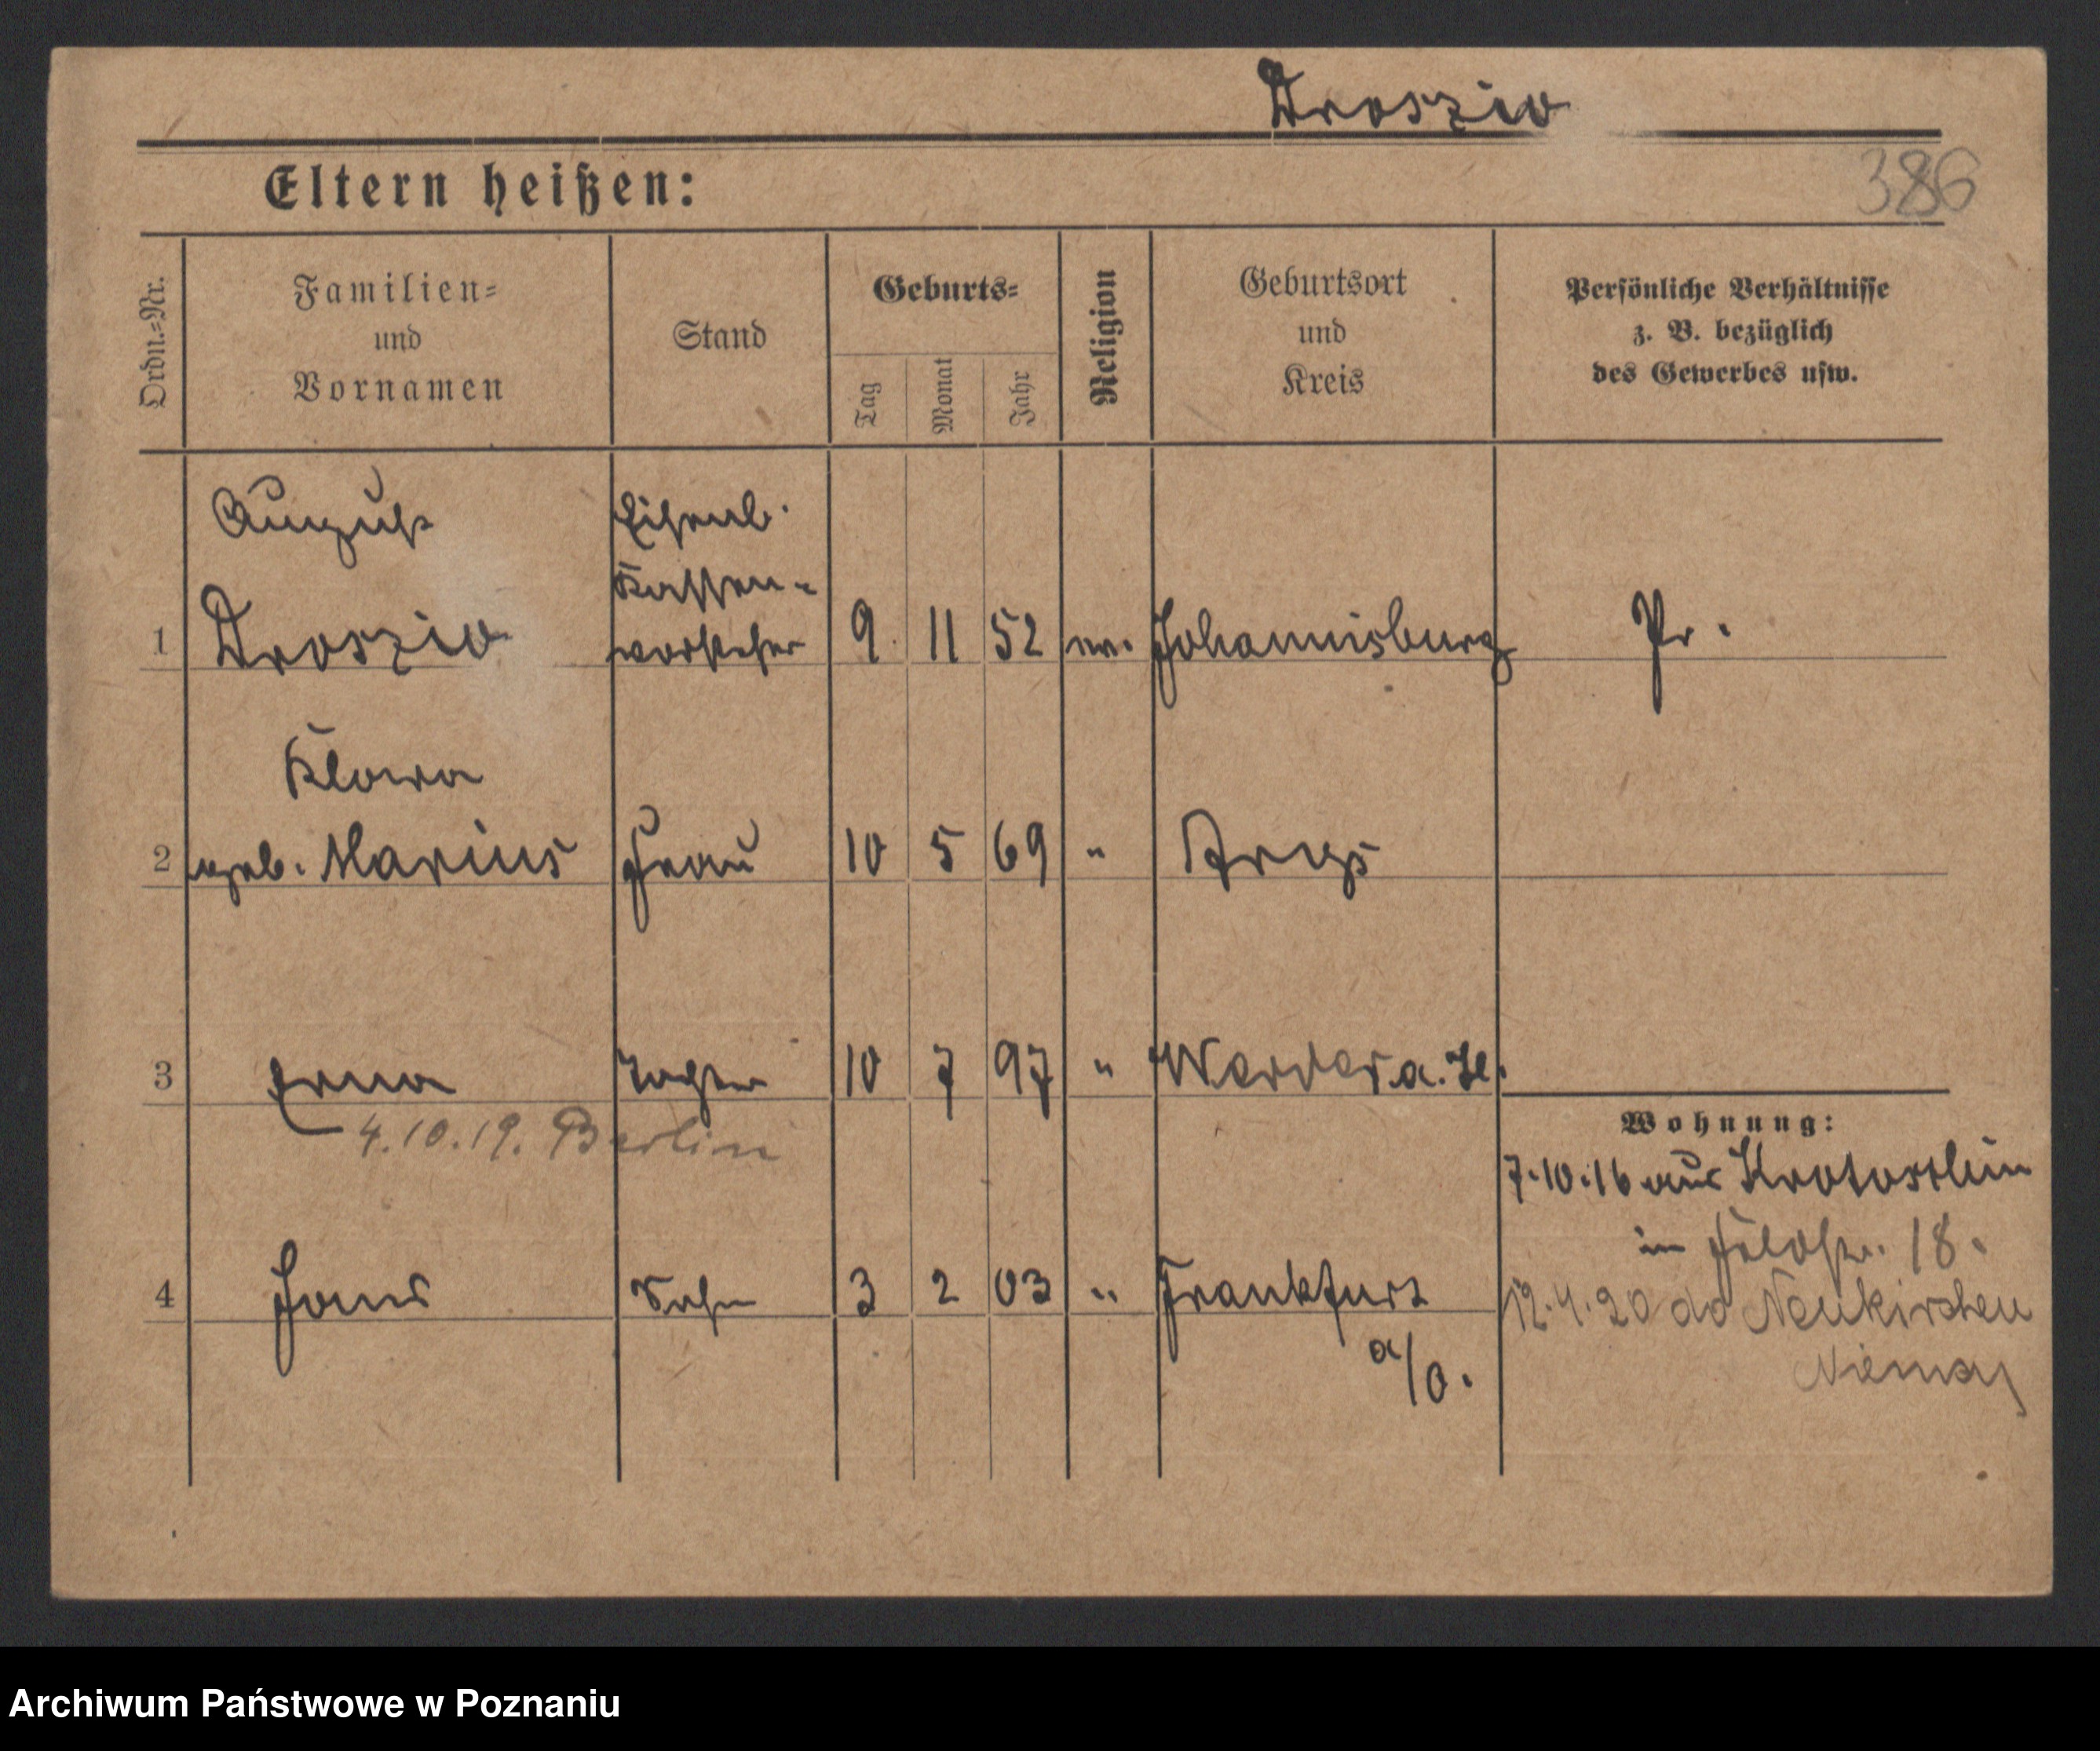 Droszio
386
Eltern heißen:
Ordn.-Nr.
Familien-
und
Vornamen
Stand
Geburts-
Tag
Monat
Jahr
Religion
Geburtsort
und
Kreis
Persönliche Verhältnisse
z. B. bezüglich
des Gewerbes usw.
August
Eisenb.
Kassen-
1 Droszio vorsteher 9. 11 52 ev. Johannisburg Pr.
Klara
2 geb. Marius Frau 10 5 69 " Arys
3 Erna Tochter 10 7 97 " Werder a. H.
4.10.19. Berlin
Wohnung:
7.10.16 aus Krotoschin
in Feldstr. 18.
4 Hans Sohn 3 2 03 " Frankfurt
a/O.
12.4.20 do Neukirchen
Niemcy
Archiwum Państwowe w Poznaniu